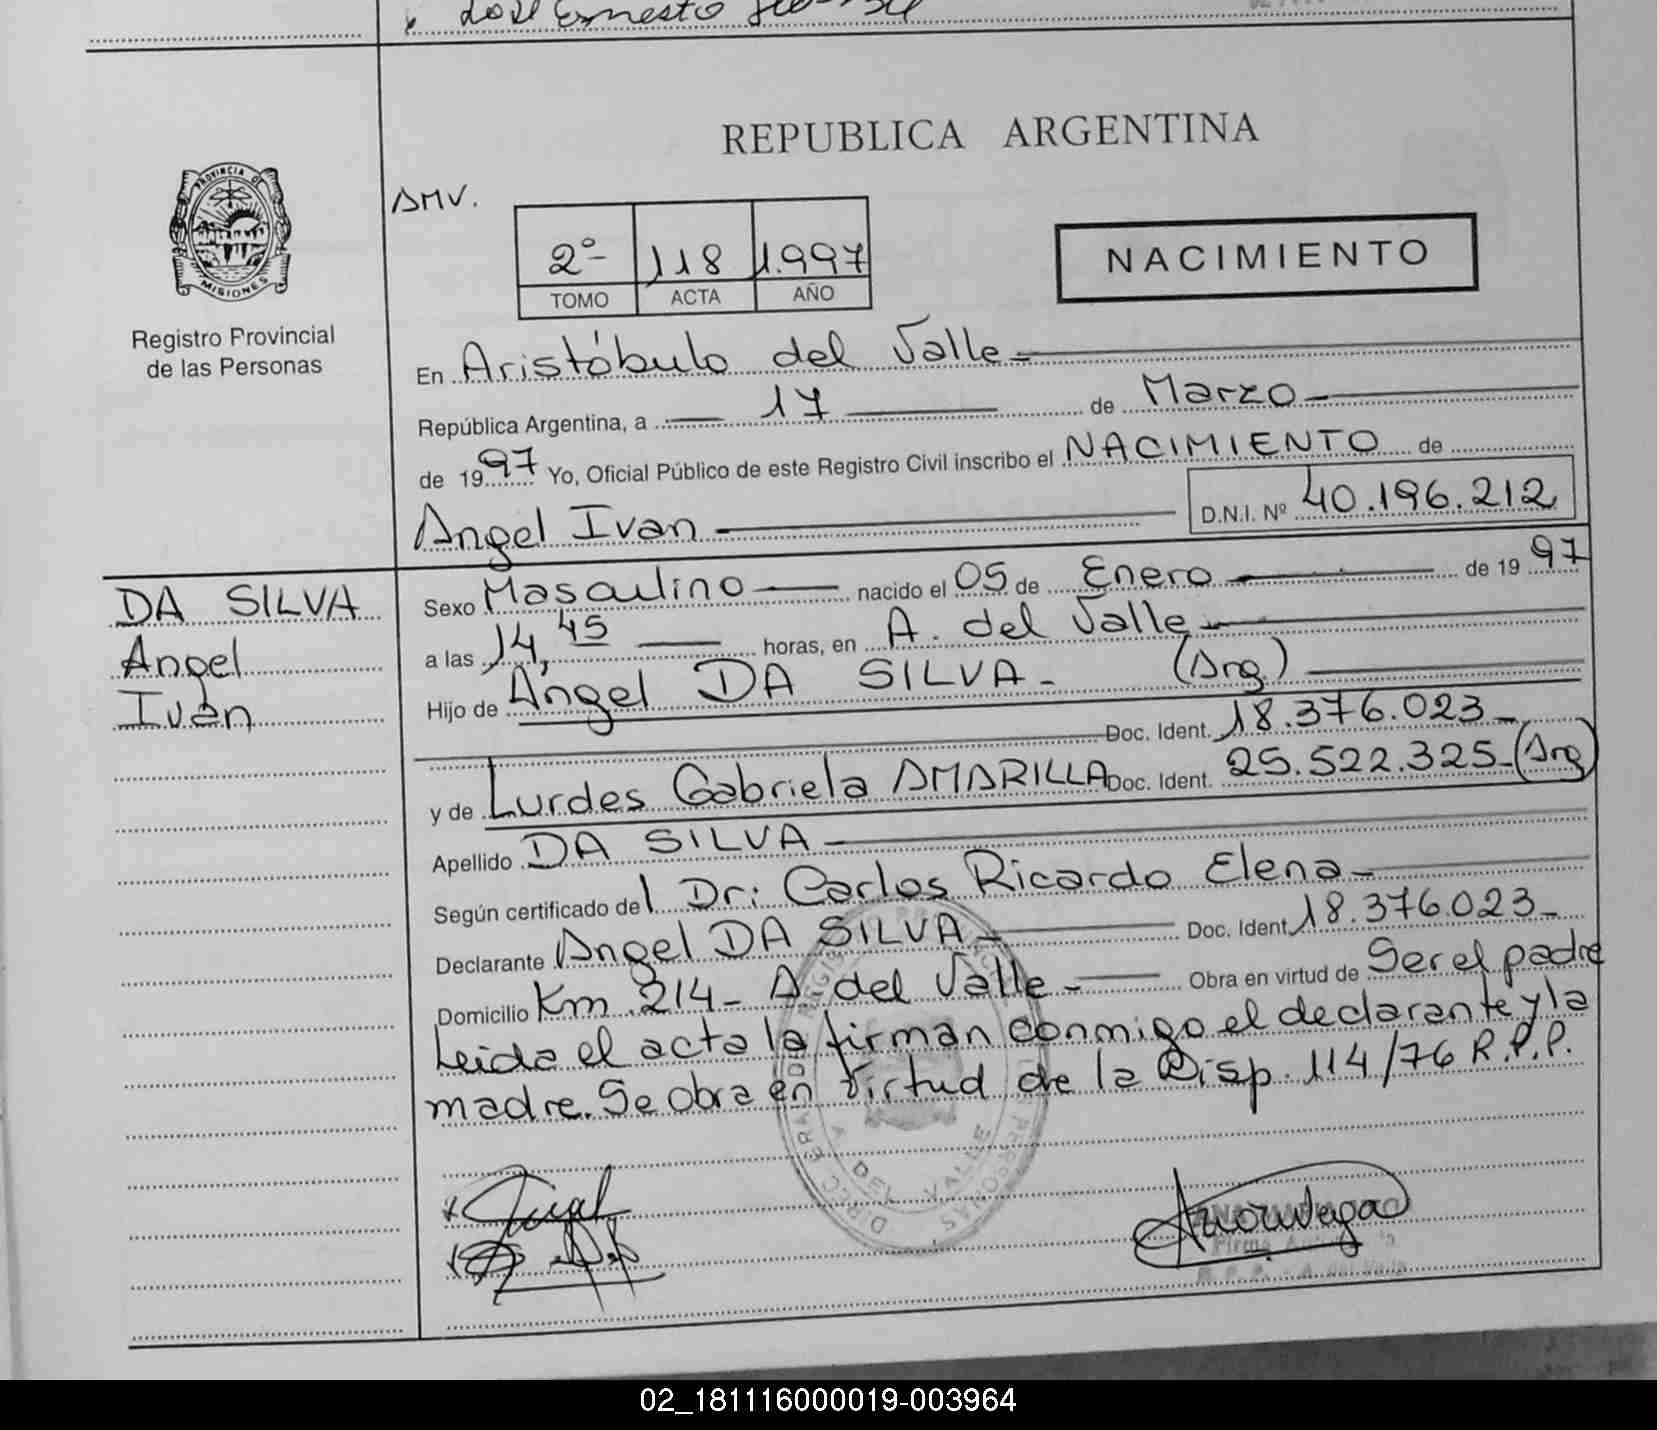 José Ernesto
REPUBLICA ARGENTINA
PROVINCIA DE
MISIONES
Registro Provincial
de las Personas
AMV.
2º 118 1.997
TOMO ACTA AÑO
NACIMIENTO
En Aristóbulo del Valle
República Argentina, a 17 de Marzo
de 1997 Yo, Oficial Público de este Registro Civil inscribo el NACIMIENTO de
Angel Ivan D.N.I. Nº 40.196.212
DA SILVA
Angel
Iván
Sexo Masculino nacido el 05 de Enero de 1997
a las 14,45 horas, en A. del Valle
Hijo de Angel DA SILVA - (Arg.)
Doc. Ident. 18.376.023-
y de Lurdes Gabriela AMARILLA Doc. Ident. 25.522.325-(Arg)
Apellido DA SILVA
Según certificado del Dr: Carlos Ricardo Elena-
Declarante Angel DA SILVA - Doc. Ident. 18.376.023-
Domicilio Km. 214- A. del Valle - Obra en virtud de Ser el padre
Leida el acta la firman conmigo el declarante y la
madre. Se obra en virtud de la Disp. 114/76 R.P.P.
A DEL VALLE
R.P.P. - A. del Valle
02_181116000019-003964